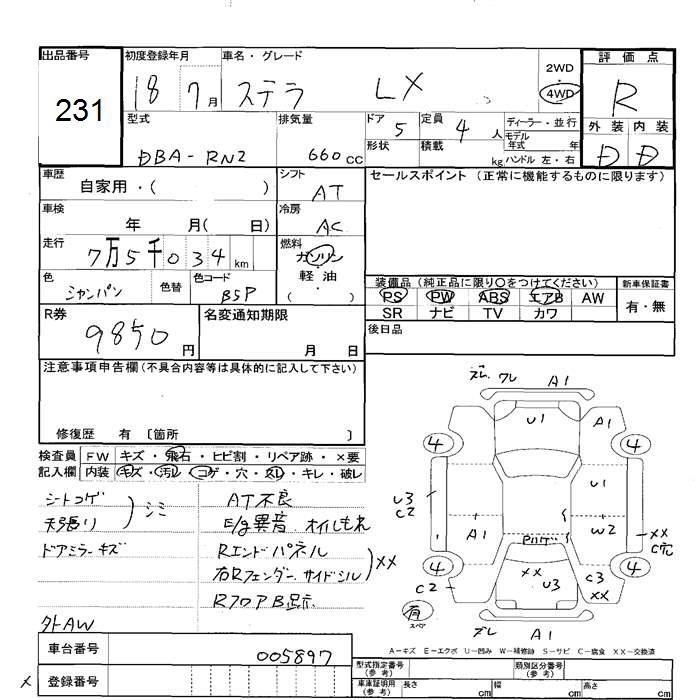 出品番号
231
初度登録年月
18 7月
車名・グレード
ステラ LX
2WD
4WD
評価点
R
外装 内装
D D
型式
DBA-RN2
排気量
660 cc
ドア 5
形状
定員 4 人
積載 kg
ディーラー・並行
モデル年式 年
ハンドル 左・右
車歴
自家用・( )
シフト
AT
セールスポイント (正常に機能するものに限ります)
車検
年 月( 日)
冷房
AC
走行
7万5千034 km
燃料
ガソリン
・
軽・油
( )
色
シャンパン
色替
色コード
BSP
装備品(純正品に限り○をつけてください)
PS PW ABS エアB AW
SR ナビ TV カワ
新車保証書
有・無
R券
9850 円
名変通知期限
月 日
後日品
注意事項申告欄(不具合内容等は具体的に記入して下さい)
修復歴 有 〔箇所 〕
検査員 FW キズ・飛石・ヒビ割・リペア跡・×要
記入欄 内装 キズ・汚レ・コゲ・穴・スレ・キレ・破レ
シートコゲ
天張り
シミ
ドアミラーキズ
外AW
AT不良
E/g異音 オイルもれ
Rエンドパネル
右Rフェンダー サイドシル
××
RフロアB
ズレ ワレ A1
U1 A1
4 4
U3
C2
U1
A1
W2
××
C穴
4 4
C2
××
U3
C3
××
有
スペア
ズレ A1
A-キズ E-エクボ U-凹み W-補修跡 S-サビ C-腐食 XX-交換済
車台番号
005897
登録番号
型式指定番号
(参考)
類別区分番号
(参考)
車庫証明用
(参考)
長さ cm
幅 cm
高さ cm